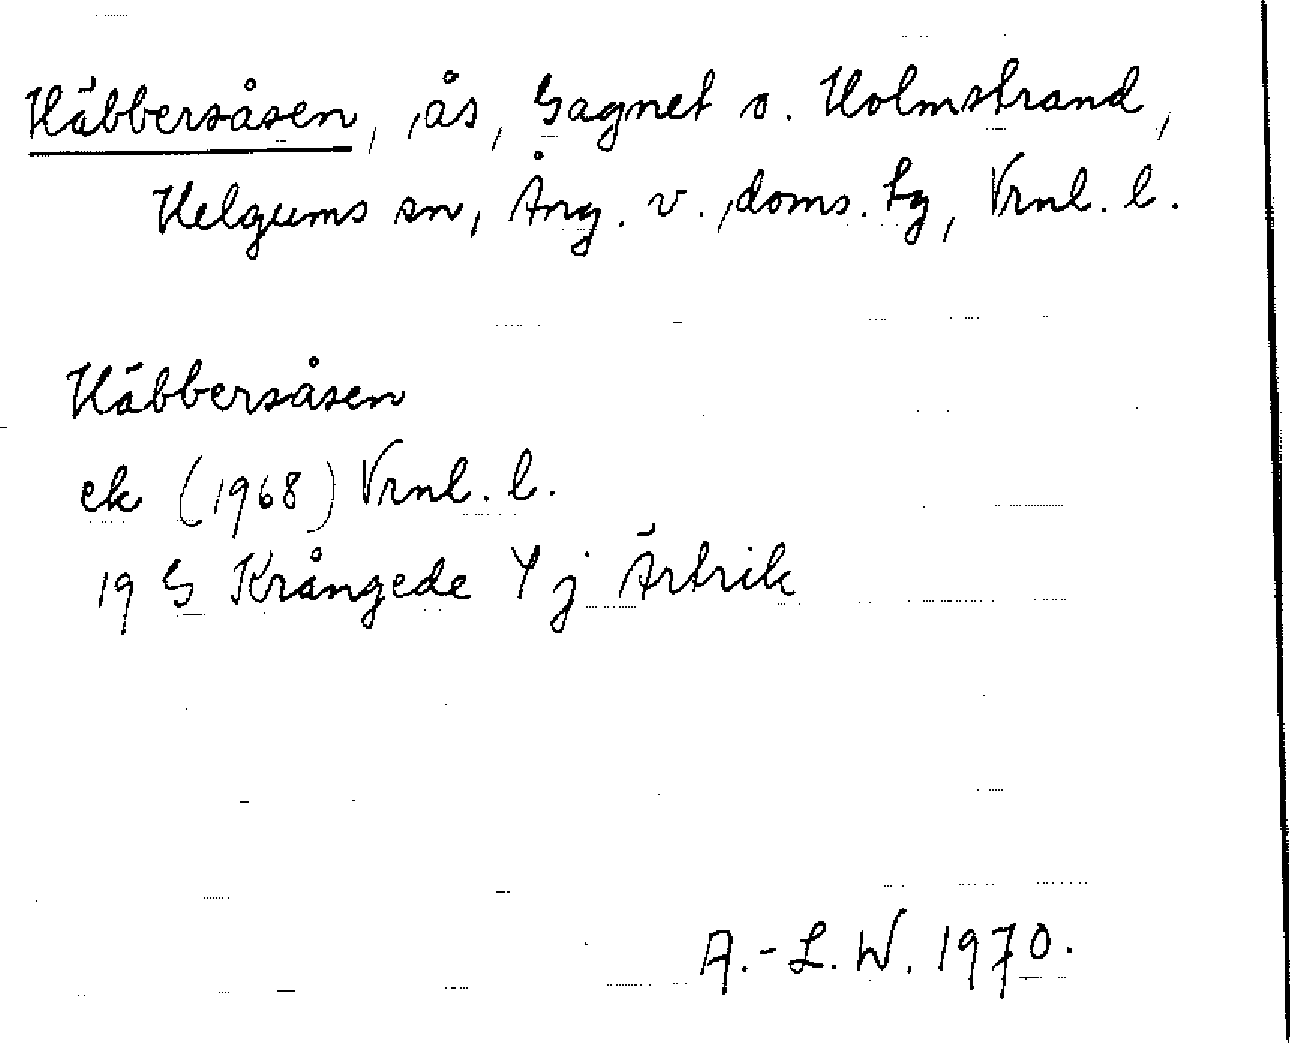 Häbbersåsen, ås, Gagnet o. Holmstrand,
Helgums sn, Ång. v. doms. tg, Vrnl. l.
Häbbersåsen
ek (1968) Vrnl. l.
19 G Krångede Y j Ärtrik
A.-L. W. 1970.